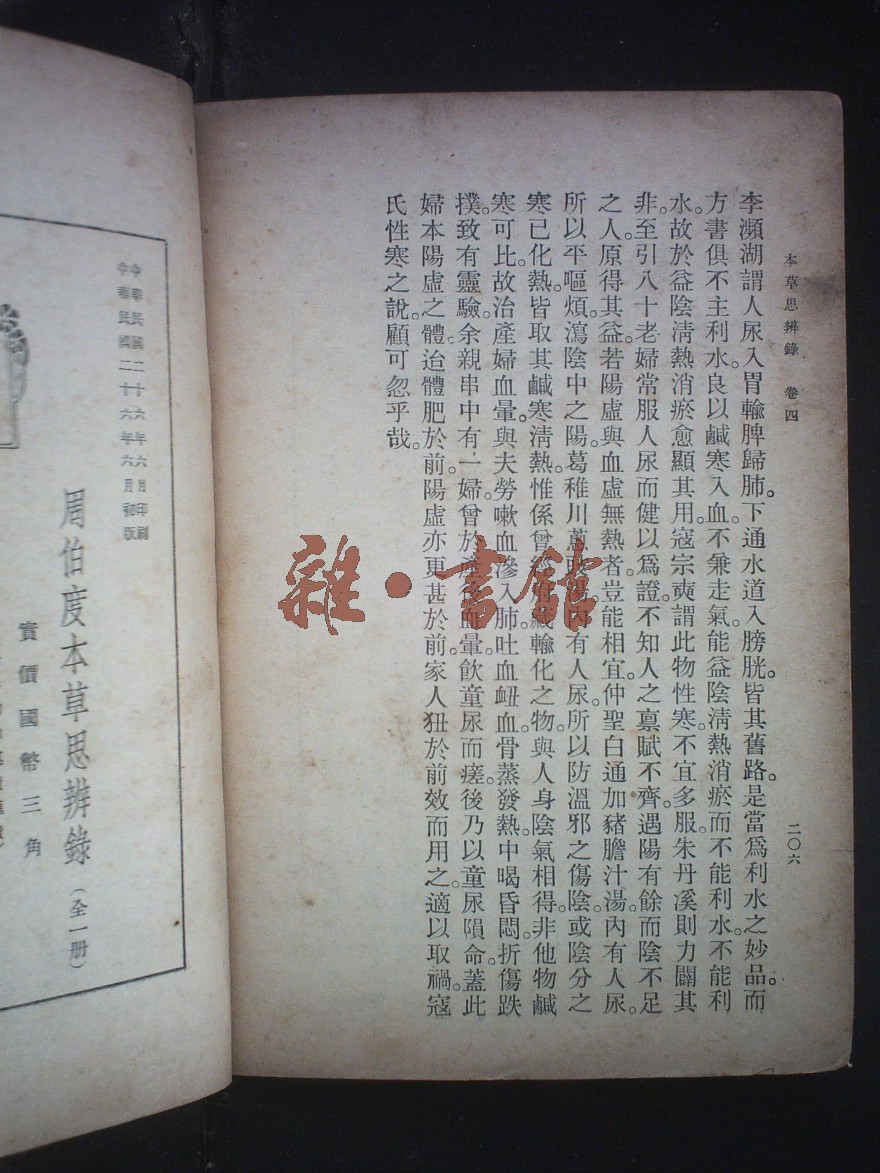 本草思辨錄 卷四
二〇六
李瀕湖謂人尿入胃輸脾歸肺。下通水道入膀胱。皆其舊路。是當爲利水之妙品。而
方書俱不主利水。良以鹹寒入血。不兼走氣。能益陰淸熱消瘀。而不能利水。不能利
水。故於益陰淸熱消瘀愈顯其用。寇宗奭謂此物性寒。不宜多服。朱丹溪則力闢其
非。至引八十老婦常服人尿而健以爲證。不知人之禀賦不齊。遇陽有餘而陰不足
之人。原得其益。若陽虛與血虛無熱者。豈能相宜。仲聖白通加豬膽汁湯內有人尿。
所以平嘔煩。瀉陰中之陽。葛稚川蔥豉湯內有人尿。所以防溫邪之傷陰。或陰分之
寒已化熱。皆取其鹹寒淸熱。惟係曾經 輸化之物。與人身陰氣相得。非他物鹹
寒可比。故治產婦血暈。與夫勞嗽血滲入肺。吐血衄血。骨蒸發熱。中暍昏悶。折傷跌
撲。致有靈驗。余親串中有一婦。曾於產後血暈。飮童尿而瘥。後乃以童尿隕命。蓋此
婦本陽虛之體。迨體肥於前。陽虛亦更甚於前。家人狃於前效而用之。適以取禍。寇
氏性寒之說。顧可忽乎哉。
中華民國二十六年六月印刷
中華民國二十六年六月初版
周伯度本草思辨錄(全一册)
實價國幣三角
雜·書館